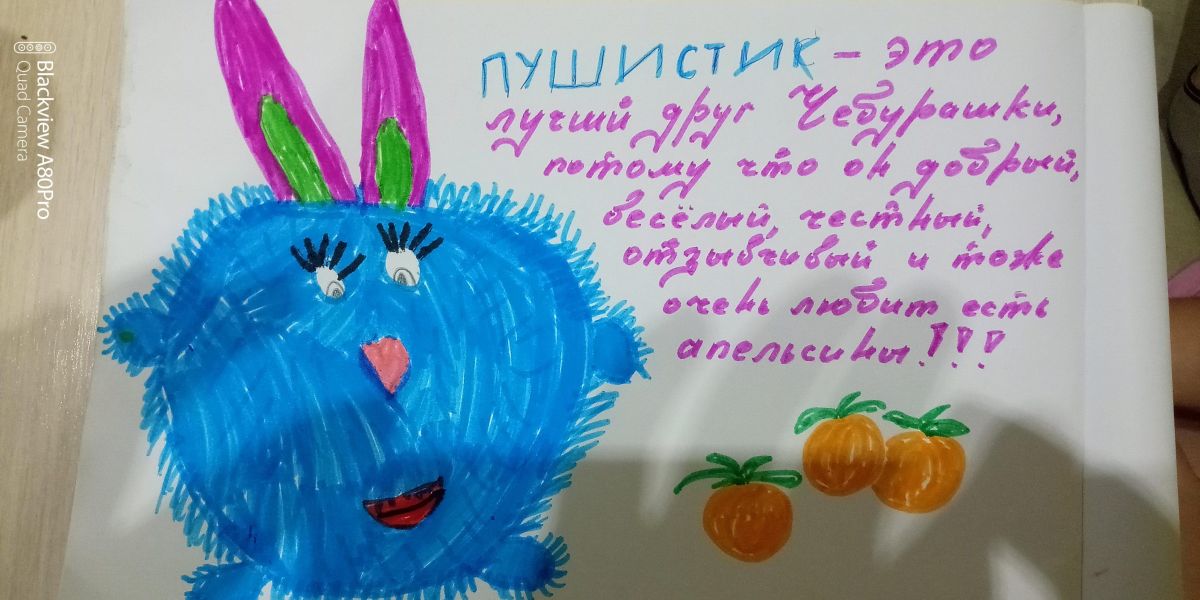 ПУШИСТИК – это
лучший друг Чебурашки,
потому что он добрый,
весёлый, честный,
отзывчивый и тоже
очень любит есть
апельсины!!!
Blackview A80Pro
Quad Camera